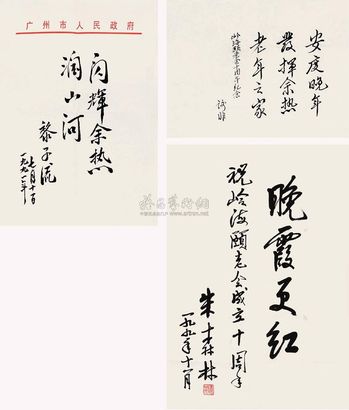 广州市人民政府
闪辉余热
润山河
黎子流
一九九一年
七月十一日
安度晚年
发挥余热
老年之家
晚霞更红
祝岭海颐老会成立十周年
朱森林
一九九一年十一月